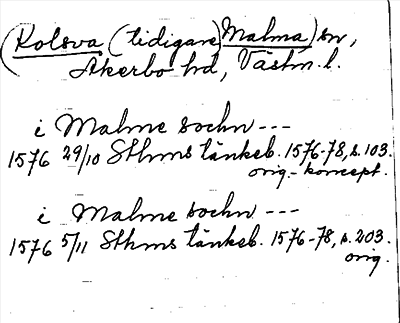 (Kolsva (tidigare) Malma) sn,
Åkerbo hd, Västm. l.
i Malme sochn ---
1576 29/10 Sthms tänkeb. 1576-78, s. 103.
orig.- koncept.
i Malme sochn ---
1576 5/11 Sthms tänkeb. 1576-78, s. 203.
orig.